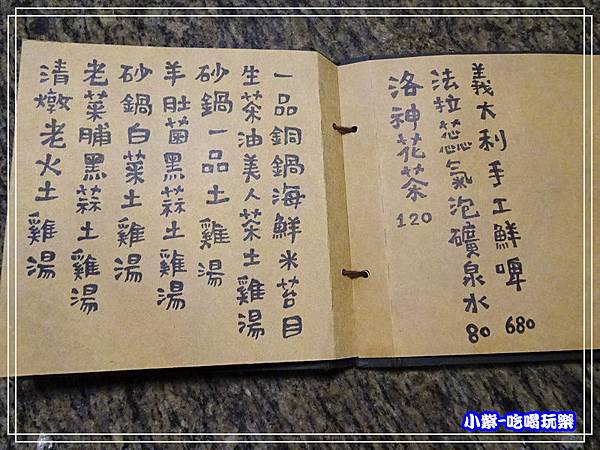 義大利手工鮮啤 680
法拉蕊氣泡礦泉水 80
洛神花茶 120
一品銅鍋海鮮米苔目
生茶油美人茶土雞湯
砂鍋一品土雞湯
羊肚菌黑蒜土雞湯
砂鍋白菜土雞湯
老菜脯黑蒜土雞湯
清燉老火土雞湯
小紫-吃喝玩樂